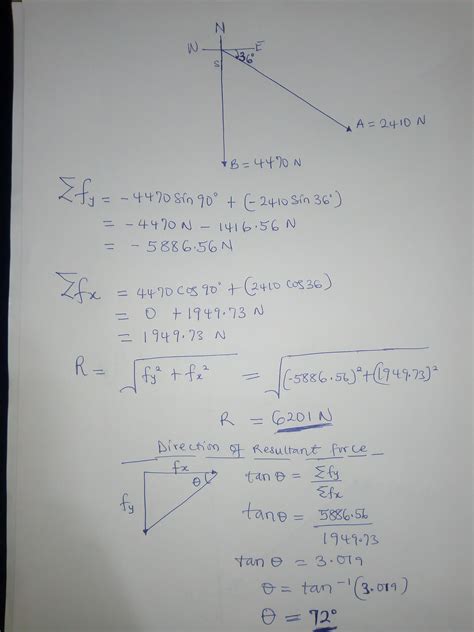 N
W E
36°
S
A = 2410 N
B = 4470 N
Σfy = -4470 Sin 90° + (-2410 Sin 36°)
= -4470 N - 1416.56 N
= -5886.56 N
Σfx = 4470 Cos 90° + (2410 Cos 36)
= 0 + 1949.73 N
= 1949.73 N
R = √(fy² + fx²) = √((-5886.56)² + (1949.73)²
R = 6201 N
Direction of Resultant force
fx
θ
fy
tan θ = Σfy / Σfx
tan θ = 5886.56 / 1949.73
tan θ = 3.019
θ = tan⁻¹ (3.019)
θ = 72°